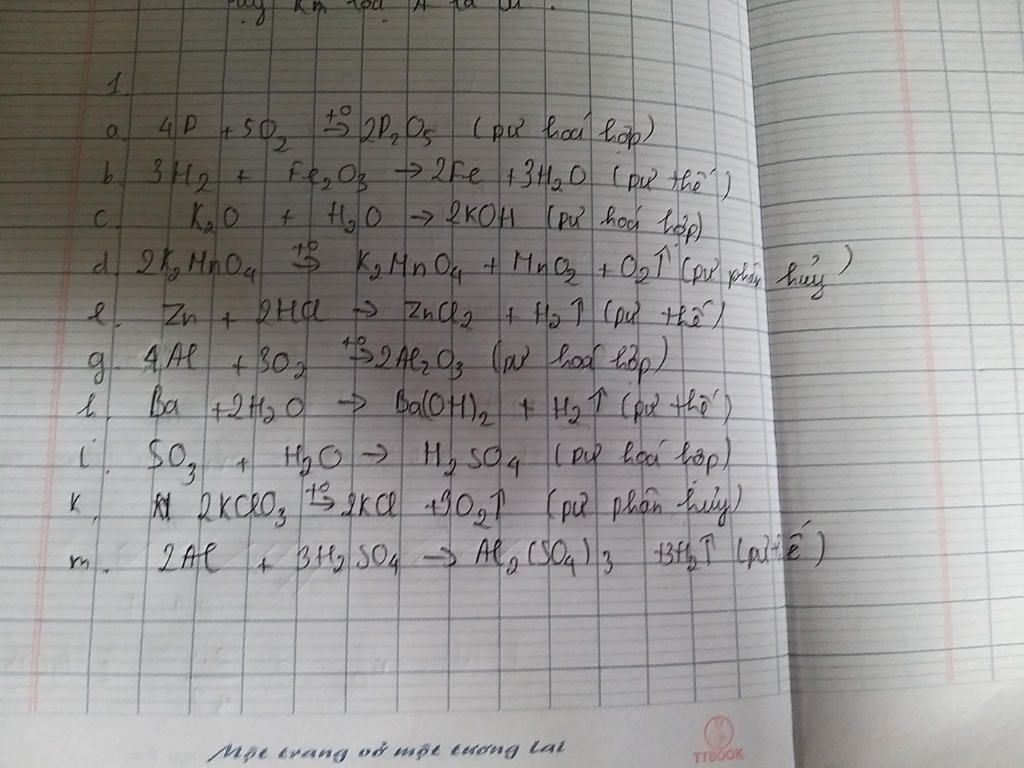 1.
a. 4P + 5O₂ →(t⁰) 2P₂O₅ (pư hoá hợp)
b. 3H₂ + Fe₂O₃ → 2Fe + 3H₂O (pư thế)
c. K₂O + H₂O → 2KOH (pư hoá hợp)
d. 2K₂MnO₄ →(t⁰) K₂MnO₄ + MnO₂ + O₂↑ (pư phân hủy)
e. Zn + 2HCl → ZnCl₂ + H₂↑ (pư thế)
g. 4Al + 3O₂ →(t⁰) 2Al₂O₃ (pư hoá hợp)
h. Ba + 2H₂O → Ba(OH)₂ + H₂↑ (pư thế)
i. SO₃ + H₂O → H₂SO₄ (pư hoá hợp)
k. 2KClO₃ →(t⁰) 2KCl + 3O₂↑ (pư phân hủy)
m. 2Al + 3H₂SO₄ → Al₂(SO₄)₃ + 3H₂↑ (pư thế)
Một trang vở một tương lai
TTBOOK